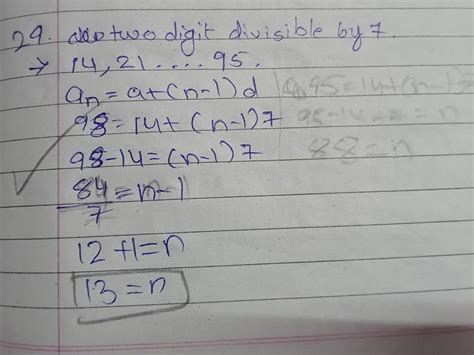 29. two digit divisible by 7.
→ 14, 21 .... 95.
an = a+(n-1)d
98 = 14+(n-1)7
98-14 = (n-1)7
84/7 = n-1
12+1=n
13 = n
95=14+(n-1)7
88=n